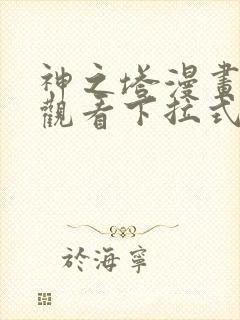 神之塔漫畫
觀看下拉式
於海寧